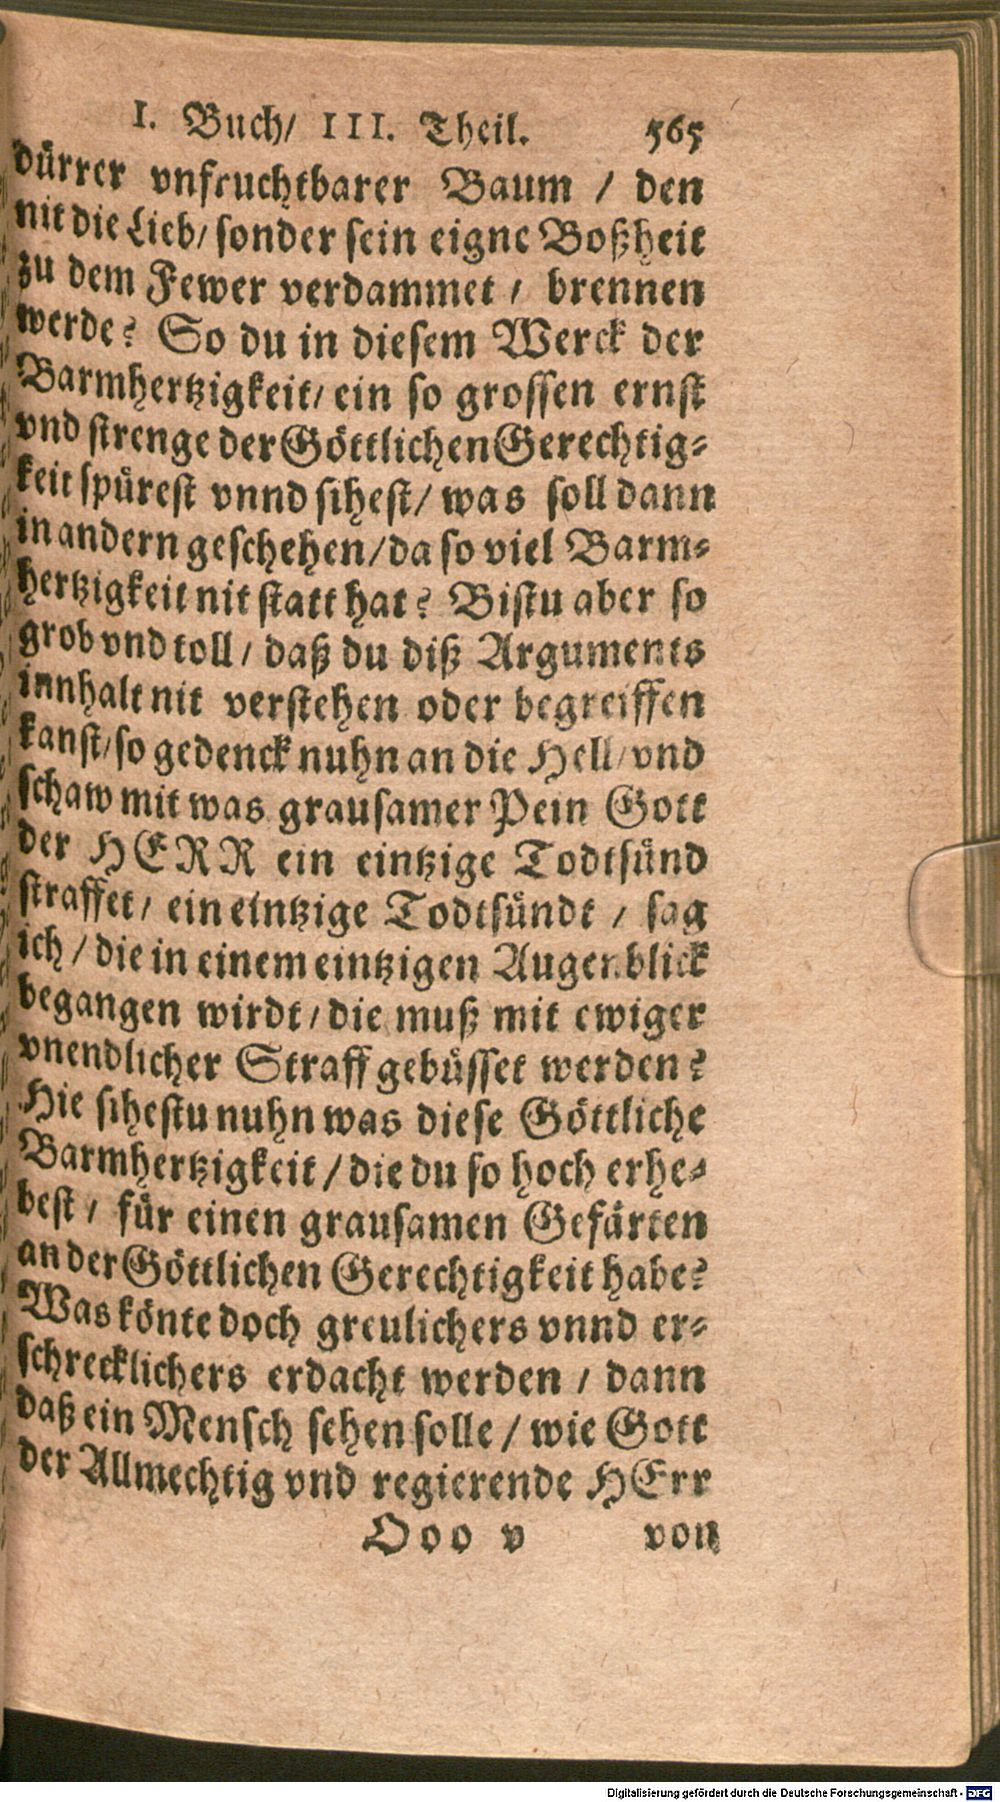 I. Buch/ III. Theil. 565
dürrer vnfruchtbarer Baum / den
nit die Lieb/ sonder sein eigne Boßheit
zu dem Fewer verdammet / brennen
werde? So du in diesem Werck der
Barmhertzigkeit/ ein so grossen ernst
vnd strenge der Göttlichen Gerechtig-
keit spürest vnnd sihest/ was soll dann
in andern geschehen/ da so viel Barm-
hertzigkeit nit statt hat? Bistu aber so
grob vnd toll/ daß du diß Arguments
innhalt nit verstehen oder begreiffen
kanst/ so gedenck nuhn an die Hell/ vnd
schaw mit was grausamer Pein Gott
der HERR ein eintzige Todtsünd
straffet/ ein eintzige Todtsündt / sag
ich / die in einem eintzigen Augenblick
begangen wirdt/ die muß mit ewiger
vnendlicher Straff gebüsset werden?
Hie sihestu nuhn was diese Göttliche
Barmhertzigkeit / die du so hoch erhe-
best / für einen grausamen Gefärten
an der Göttlichen Gerechtigkeit habe?
Was könte doch greulichers vnnd er-
schrecklichers erdacht werden / dann
daß ein Mensch sehen solle / wie Gott
der Allmechtig vnd regierende HErr
Ooo v von
Digitalisierung gefördert durch die Deutsche Forschungsgemeinschaft - DFG